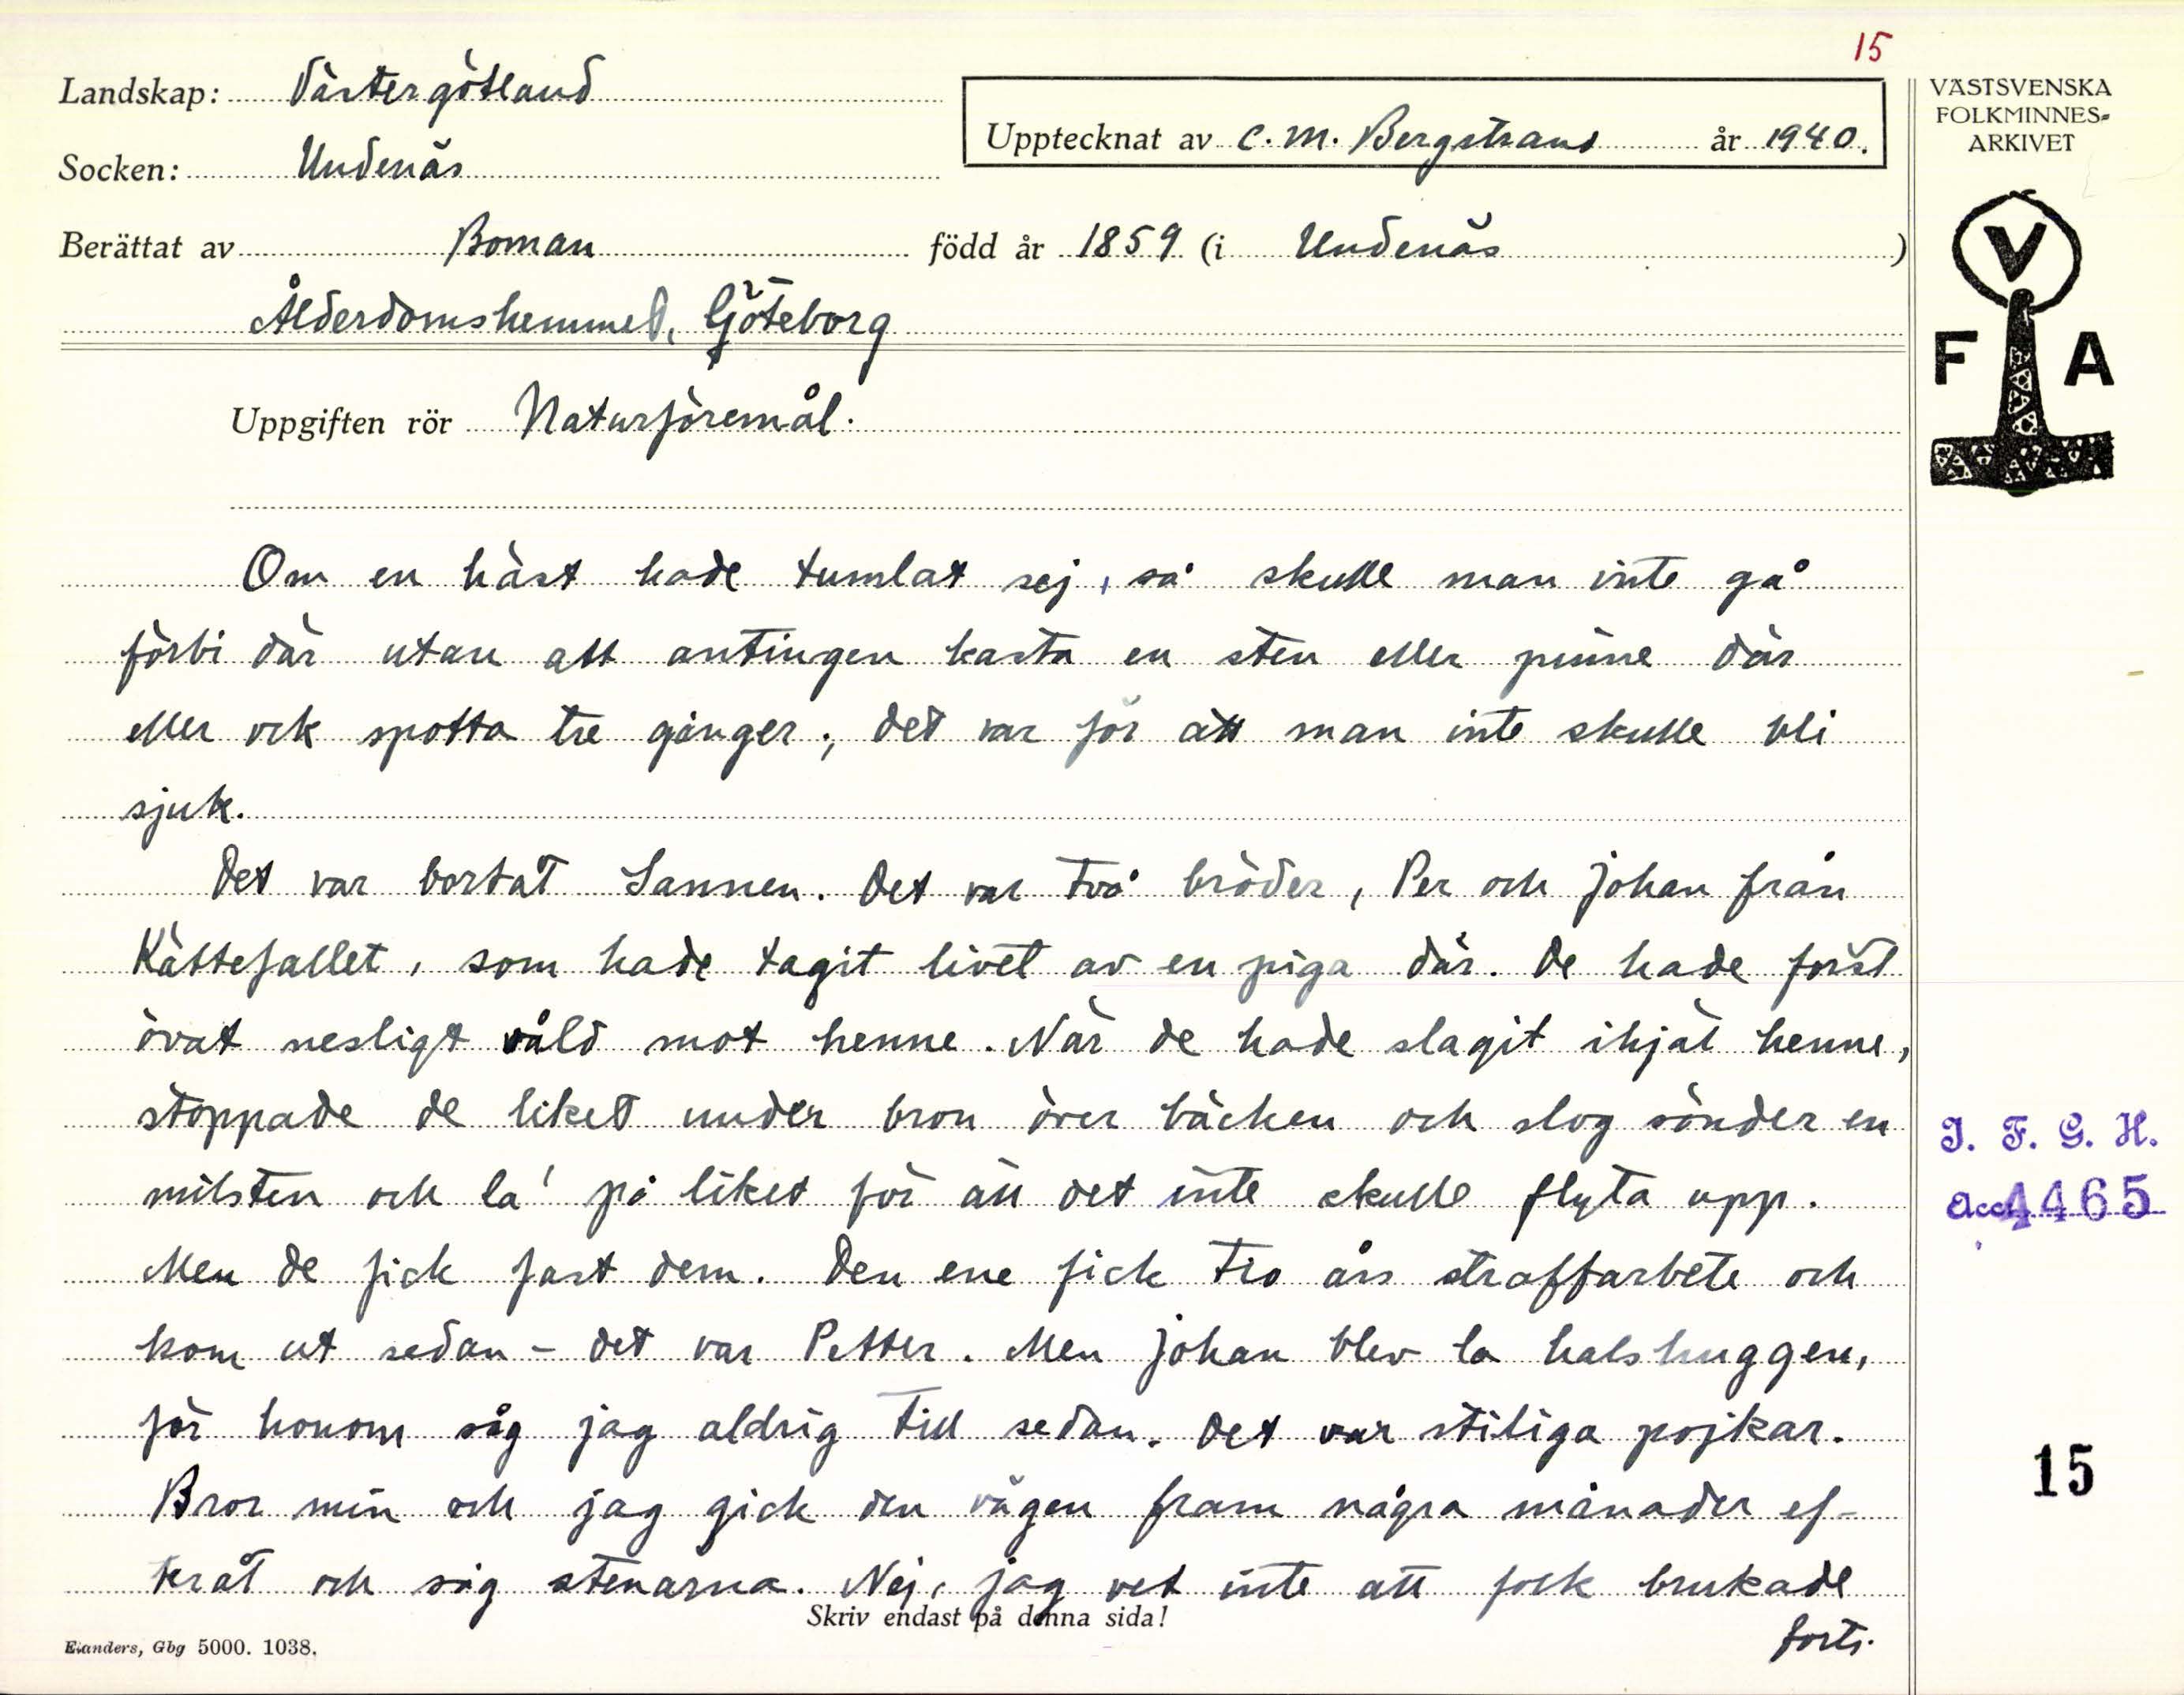 15
Landskap: Västergötland
Socken: Undenäs
Upptecknat av C. M. Bergstrand år 1940.
Berättat av Boman född år 1859 (i Undenäs)
Ålderdomshemmet, Göteborg
Uppgiften rör Naturföremål.
Om en häst hade tumlat sej, så skulle man inte gå
förbi där utan att antingen kasta en sten eller pinne där
eller ock spotta tre gånger; det var för att man inte skulle bli
sjuk.
Det var bortåt Sannen. Det var två bröder, Per och Johan från
Kättefallet, som hade tagit livet av en piga där. De hade först
övat nesligt våld mot henne. När de hade slagit ihjäl henne,
stoppade de liket under bron över bäcken och slog sönder en
milsten och la' på liket för att det inte skulle flyta upp.
Men de fick fast dem. Den ene fick tio års straffarbete och
kom ut sedan - det var Petter. Men Johan blev la halshuggen,
för honom såg jag aldrig till sedan. Det var stiliga pojkar.
Bror min och jag gick den vägen fram några månader ef-
teråt och såg stenarna. Nej, jag vet inte att folk brukade
forts.
Skriv endast på denna sida!
Elanders, Gbg 5000. 1038.
VÄSTSVENSKA
FOLKMINNES-
ARKIVET
V
F A
I. F. G. H.
Acc 4465
15